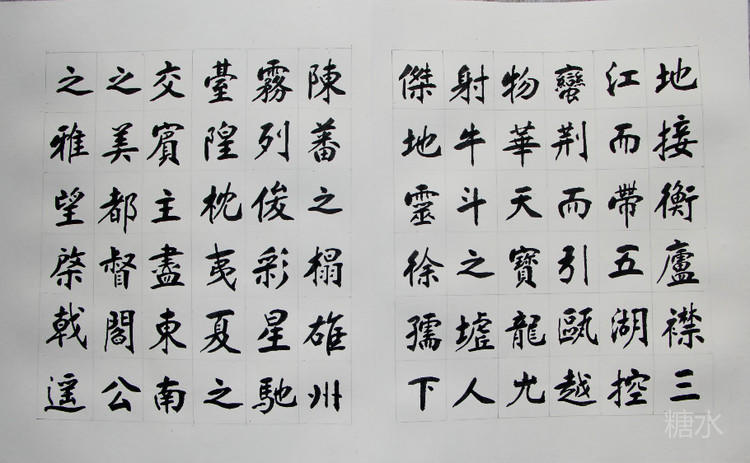 地接衡廬襟三
江而帶五湖控
蠻荆而引甌越
物華天寶龍光
射牛斗之墟人
傑地靈徐孺下
陳蕃之榻雄州
霧列俊彩星馳
臺隍枕夷夏之
交賓主盡東南
之美都督閻公
之雅望棨戟遥
糖水